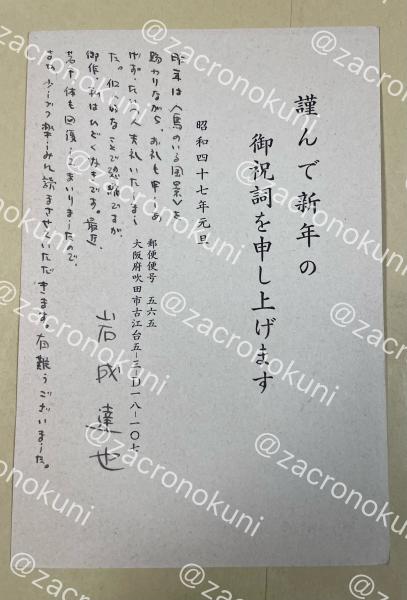 謹んで新年の
御祝詞を申し上げます
昭和四十七年元旦
郵便番号 五六五
大阪府吹田市古江台五ー三 D一八ー一〇七
岩成達也
昨年は《馬のいる風景》を
賜わりながら、お礼も申しあ
げず、たいへん失礼いたしまし
た。私的なことで恐縮ですが、
御作 はひどく きです。最近、
若干体も回復してまいりましたので、
また少しづつ楽しみに読ませていただきます。有難うございました。
@zacronokuni